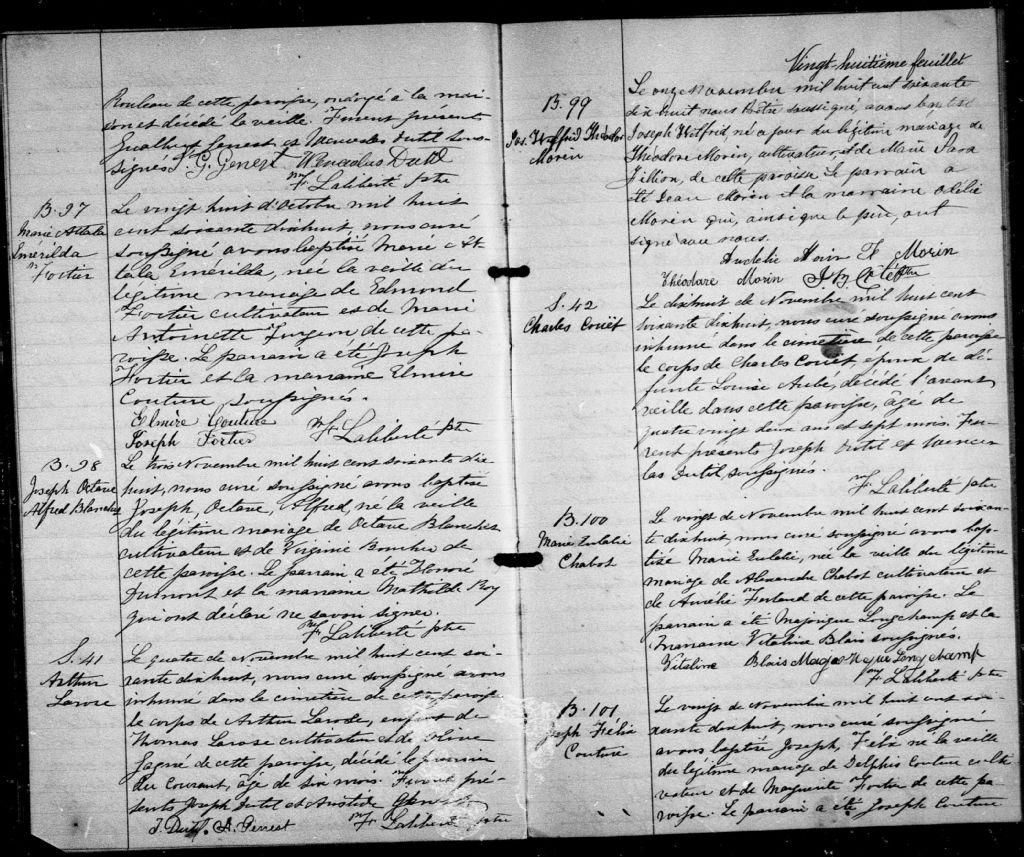 Rouleau de cette paroisse, mariée à la mai-
son et décédé la veille. Furent présents
Gualbert Genest et Wenceslas Dutil sous-
signés J. G. Genest Wenceslas Dutil
F. Laliberté ptre
B. 97
Marie Attala
Emérilda
Fortier
Le vingt huit d'Octobre mil huit
cent soixante dixhuit, nous curé
soussigné avons baptisé Marie At-
tala Emérilda, née la veille du
légitime mariage de Edmond
Fortier cultivateur et de Marie
Antoinette Turgeon de cette pa-
roisse. Le parrain a été Joseph
Fortier et la marraine Elmire
Couture, soussignés.
Elmire Couture
Joseph Fortier F. Laliberté ptre
B. 98
Joseph Octave
Alfred Blanchet
Le trois Novembre mil huit cent soixante dix
huit, nous curé soussigné avons baptisé
Joseph, Octave, Alfred, né la veille
du légitime mariage de Octave Blanchet
cultivateur et de Virginie Boucher de
cette paroisse. Le parrain a été Honoré
Dumont et la marraine Mathilde Roy
qui ont déclaré ne savoir signer.
F. Laliberté ptre
S. 41
Arthur
Larose
Le quatre de Novembre mil huit cent soi-
xante dixhuit, nous curé soussigné avons
inhumé dans le cimetière de cette paroisse
le corps de Arthur Larose, enfant de
Thomas Larose cultivateur et de Olive
Gagné de cette paroisse, décédé le premier
du courant, âgé de six mois. Furent pré-
sents Joseph Dutil et Aristide Genest
J. Dutil. A. Genest F. Laliberté ptre
Vingt-huitième feuillet
B. 99
Jos. Wilfrid Théodore
Morin
Le onze Novembre mil huit cent soixante
dix huit nous Prêtre soussigné avons baptisé
Joseph Wilfrid né ce jour du légitime mariage de
Théodore Morin, cultivateur, et de Marie Sara
Fillion, de cette paroisse. Le parrain a
été Jean Morin et la marraine Odélie
Morin qui, ainsi que le père, ont
signé avec nous.
Aurélie Morin F. Morin
Théodore Morin J. B. C. ptre
S. 42
Charles Couët
Le dixhuit de Novembre mil huit cent
soixante dixhuit, nous curé soussigné avons
inhumé dans le cimetière de cette paroisse
le corps de Charles Couët, époux de dé-
funte Louise Aubé, décédé l'avant
veille dans cette paroisse, âgé de
quatre vingt deux ans et sept mois. Fu-
rent présents Joseph Dutil et Wences-
las Dutil, soussignés.
F. Laliberté ptre
B. 100
Marie Eulalie
Chabot
Le vingt de Novembre mil huit cent soixan-
te dixhuit, nous curé soussigné avons bap-
tisé Marie Eulalie, née la veille du légitime
mariage de Alexandre Chabot cultivateur et
de Aurélie Ferland de cette paroisse. Le
parrain a été Majorique Longchamp et la
marraine Vitaline Blais soussignés.
Vitaline Blais Longchamp
F. Laliberté ptre
B. 101
Joseph Félix
Couture
Le vingt de Novembre mil huit cent soi-
xante dixhuit, nous curé soussigné
avons baptisé Joseph, Félix né la veille
du légitime mariage de Delphis Couture culti-
vateur et de Marguerite Fortier de cette pa-
roisse. Le parrain a été Joseph Couture